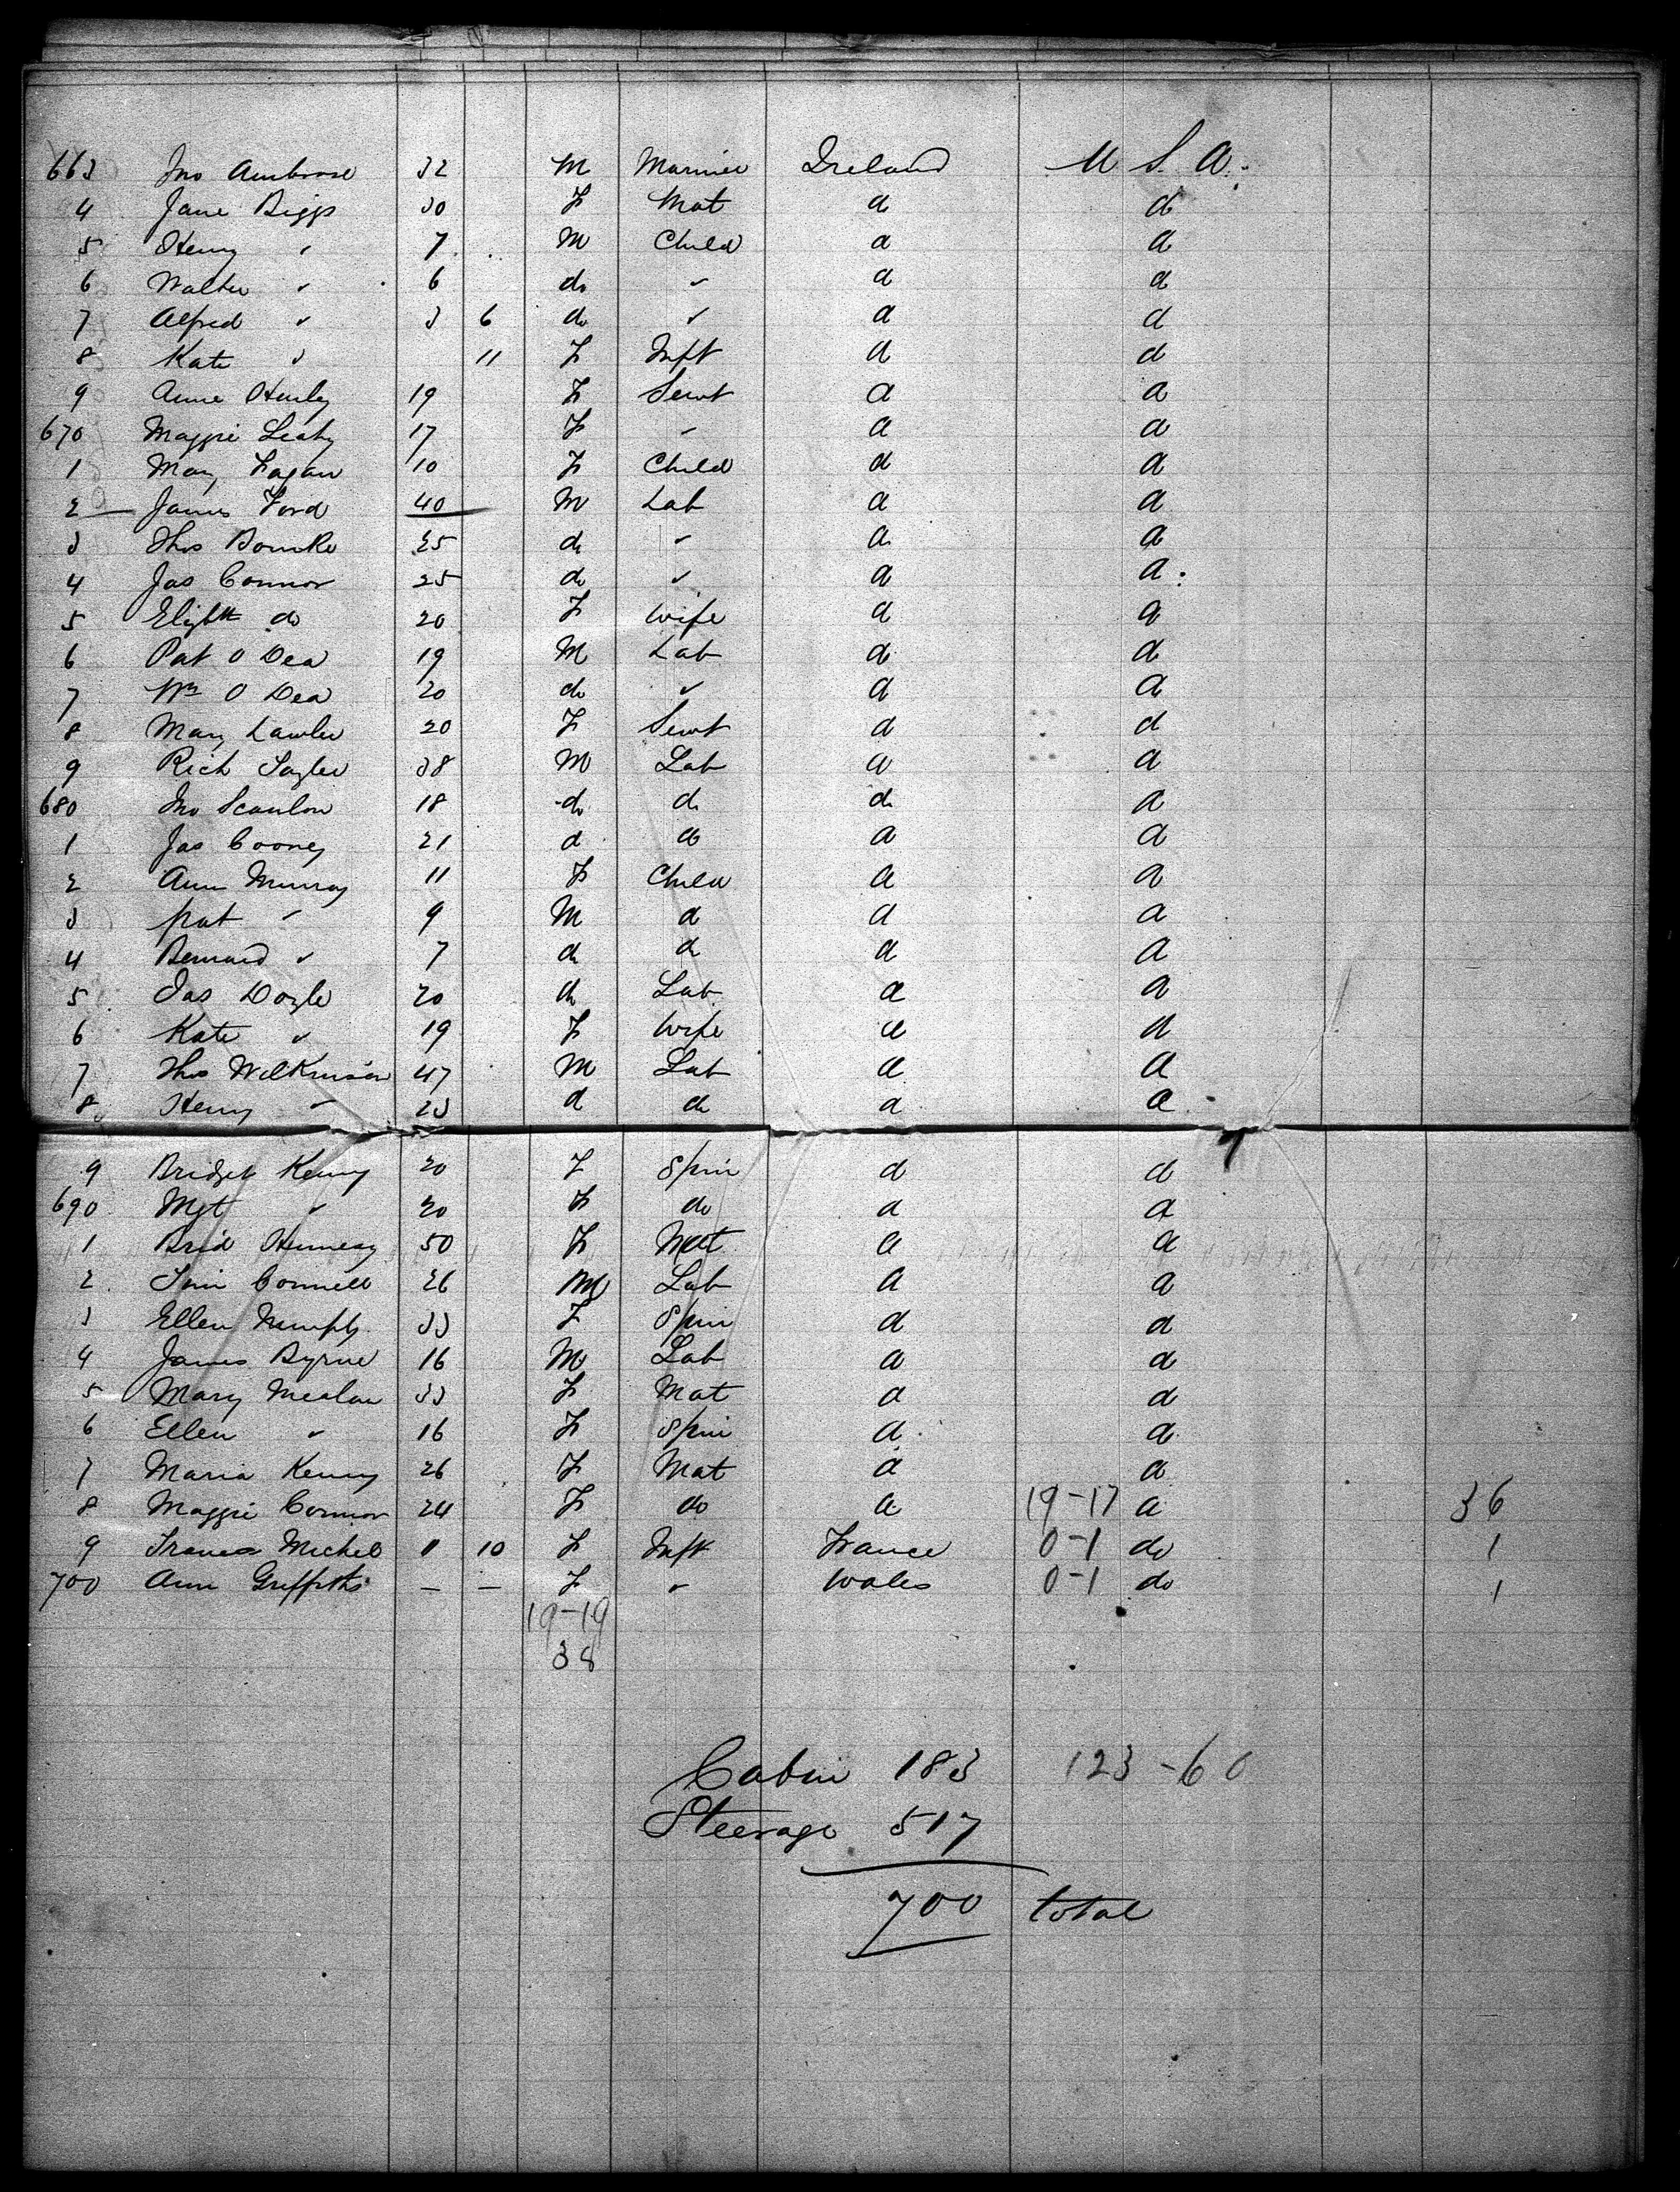 663 Jno Ambrose 32 M Mariner Ireland U S A.
4 Jane Biggs 30 F Mat d d
5 Henry " 7 M Child d d
6 Walter " 6 do " d d
7 Alfred " 3 6 do " d d
8 Kate " 11 F Inft d d
9 Anne Hurley 19 F Servt d d
670 Maggie Leahy 17 F " d d
1 Mary Fagan 10 F Child d d
2 James Ford 40 M Lab d d
3 Thos Bourke 25 do " d d
4 Jas Connor 25 do " d d
5 Elizbth do 20 F Wife d d
6 Pat O Dea 19 M Lab d d
7 Wm O Dea 20 do " d d
8 Mary Lawler 20 F Servt d d
9 Rich 38 M Lab d d
680 Jno Scanlon 18 do do do d
1 Jas Cooney 21 d do d d
2 Ann Murray 11 F Child d d
3 Pat " 9 M d d d
4 Bernard " 7 do do d d
5 Jas Doyle 20 do Lab d d
6 Kate " 19 F Wife d d
7 Thos Wilkinson 47 M Lab d d
8 Henry " 23 d do d d
9 Bridget Kenny 20 F Spin d d
690 Mgt " 20 F do d d
1 Brid Hennesy 50 F Mat d d
2 Tim Connell 26 M Lab d d
3 Ellen Murphy 33 F Spin d d
4 James Byrne 16 M Lab d d
5 Mary Mealan 33 F Mat d d
6 Ellen " 16 F Spin d d
7 Maria Kenny 26 F Mat d d
8 Maggie Connor 24 F do d 19-17 d 36
9 Michel 10 F Inft France 0-1 do 1
700 Ann Griffiths — — F " Wales 0-1 do 1
19-19
38
Cabin 183 123-60
Steerage 517
700 total